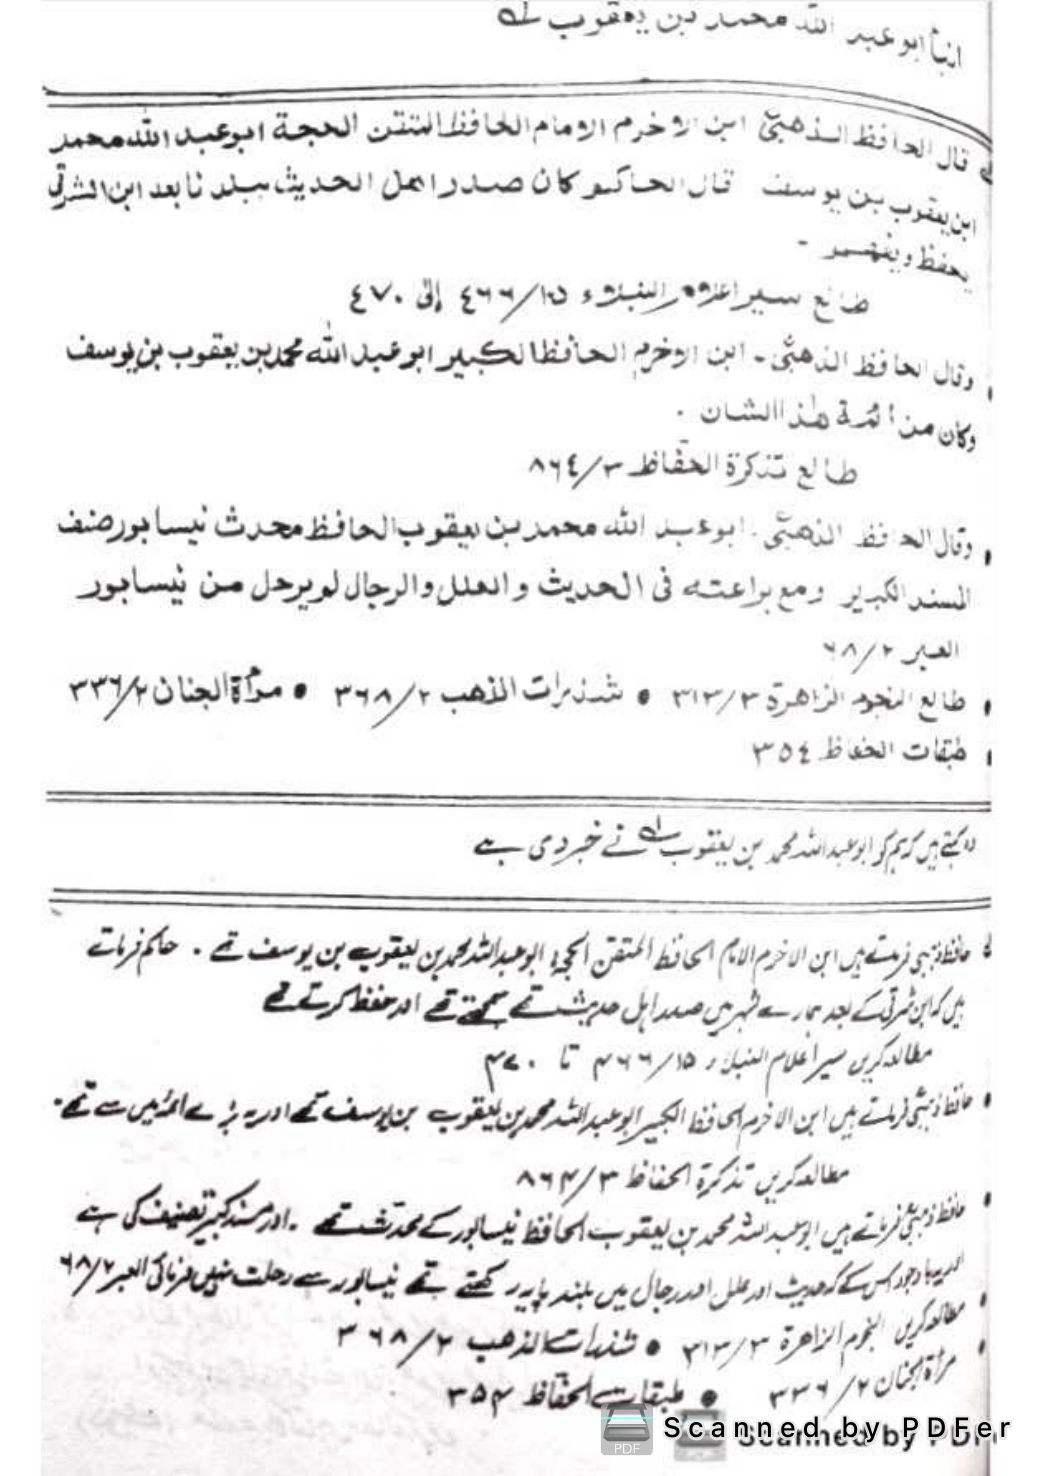 انبأ ابو عبد الله محمد بن يعقوب
قال الحافظ الذهبيّ ابن الاخرم الامام الحافظ المتقن الحجة ابو عبد الله محمد
ابن يعقوب بن يوسف قال الحاكم كان صدر اهل الحديث ببلدنا بعد ابن الشرقي
يحفظ ويفهم -
طالع سير اعلام النبلاء ١٥/٤٦٦ إلى ٤٧٠
وقال الحافظ الذهبيّ - ابن الاخرم الحافظ الكبير ابو عبد الله محمد بن يعقوب بن يوسف
وكان من أئمة هذا الشان .
طالع تذكرة الحفّاظ ٣/٨٦٤
وقال الحافظ الذهبيّ . ابو عبد الله محمد بن يعقوب الحافظ محدث نيسابور صنف
المسند الكبير ومع براعته فى الحديث و العلل والرجال لم يرحل من نيسابور
العبر ٢/٦٨
طالع النجوم الزاهرة ٣/٣١٣ • شذرات الذهب ٢/٣٦٨ • مرأة الجنان ٢/٣٣٦
طبقات الحفاظ ٣٥٤
وہ کہتے ہیں کہ ہم کو ابو عبد اللہ محمد بن یعقوب نے خبر دی ہے
حافظ ذہبی فرماتے ہیں ابن الاخرم الامام الحافظ المتقن الحجۃ ابو عبد اللہ محمد بن یعقوب بن یوسف تھے . حاکم فرماتے
ہیں کہ ابن شرقی کے بعد ہمارے شہر میں صدر اہل حدیث تھے سمجھتے تھے اور حفظ کرتے تھے
مطالعہ کریں سیر اعلام النبلاء ۱۵/۴۶۶ تا ۴۷۰
حافظ ذہبیؒ فرماتے ہیں ابن الاخرم الحافظ الکبیر ابو عبد اللہ محمد بن یعقوب بن یوسف تھے اور یہ بڑے ائمہ میں سے تھے۔
مطالعہ کریں تذکرۃ الحفاظ ۳/۸۶۴
حافظ ذہبیؒ فرماتے ہیں ابو عبد اللہ محمد بن یعقوب الحافظ نیساپور کے محدث تھے ۔ اور مسند کبیر تصنیف کی ہے
اور یہ باوجود اس کے کہ حدیث اور علل اور رجال میں بلند پایہ رکھتے تھے نیساپور سے رحلت نہیں فرمائی العبر ۲/۶۸
مطالعہ کریں النجوم الزاھرۃ ۳/۳۱۳ • شذرات الذھب ۲/۳۶۸
مرأۃ الجنان ۲/۳۳۶ • طبقات الحفاظ ۳۵۴
PDF Scanned by PDFer
Scanned by PDF